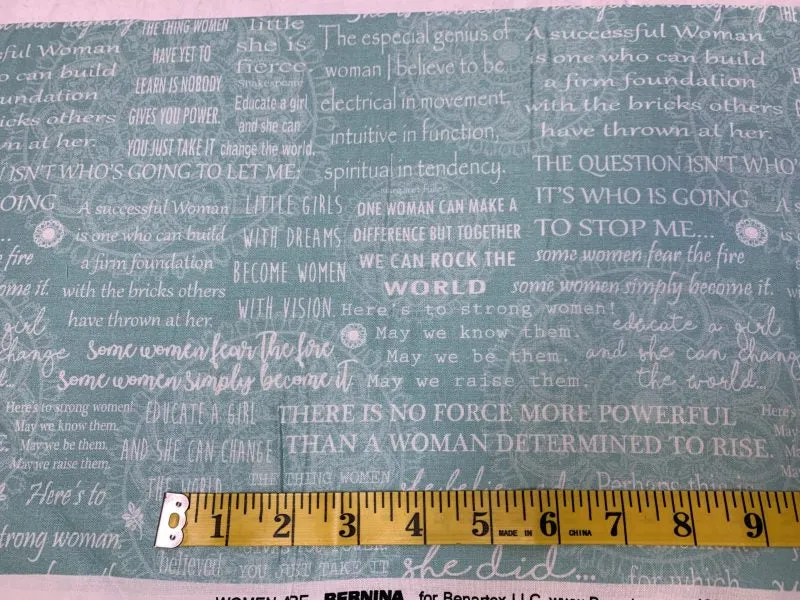 THE THING WOMEN
HAVE YET TO
LEARN IS NOBODY
GIVES YOU POWER.
YOU JUST TAKE IT
little
she is
fierce.
Shakespeare
Educate a girl
and she can
change the world.
The especial genius of
woman I believe to be
electrical in movement,
intuitive in function,
spiritual in tendency.
Margaret Fuller
A successful Woman
is one who can build
a firm foundation
with the bricks others
have thrown at her.
ful Woman
o can build
undation
icks others
n at her.
ISN'T WHO'S GOING TO LET ME;
OING
THE QUESTION ISN'T WHO'
IT'S WHO IS GOING
TO STOP ME...
A successful Woman
is one who can build
a firm foundation
with the bricks others
have thrown at her.
LITTLE GIRLS
WITH DREAMS
BECOME WOMEN
WITH VISION.
ONE WOMAN CAN MAKE A
DIFFERENCE BUT TOGETHER
WE CAN ROCK THE
WORLD
some women fear the fire
some women simply become it.
e fire
ome it.
Here's to strong women!
May we know them.
May we be them.
May we raise them.
educate a girl
and she can chang
the world...
girl
change
some women fear the fire
some women simply become it
Here's to strong women!
May we know them.
May we be them.
May we raise them.
EDUCATE A GIRL
AND SHE CAN CHANGE
THE WORLD
THERE IS NO FORCE MORE POWERFUL
THAN A WOMAN DETERMINED TO RISE.
Here's
May
May
May w
THE THING WOMEN
she believed
Perhaps this is
Here's to
strong woman.
1 2 3 4 5 6 7 8 9
MADE IN CHINA
believed
YOU JUST TAKE IT
she did...
for which
WOMEN ARE BERNINA for Benartex LLC www.